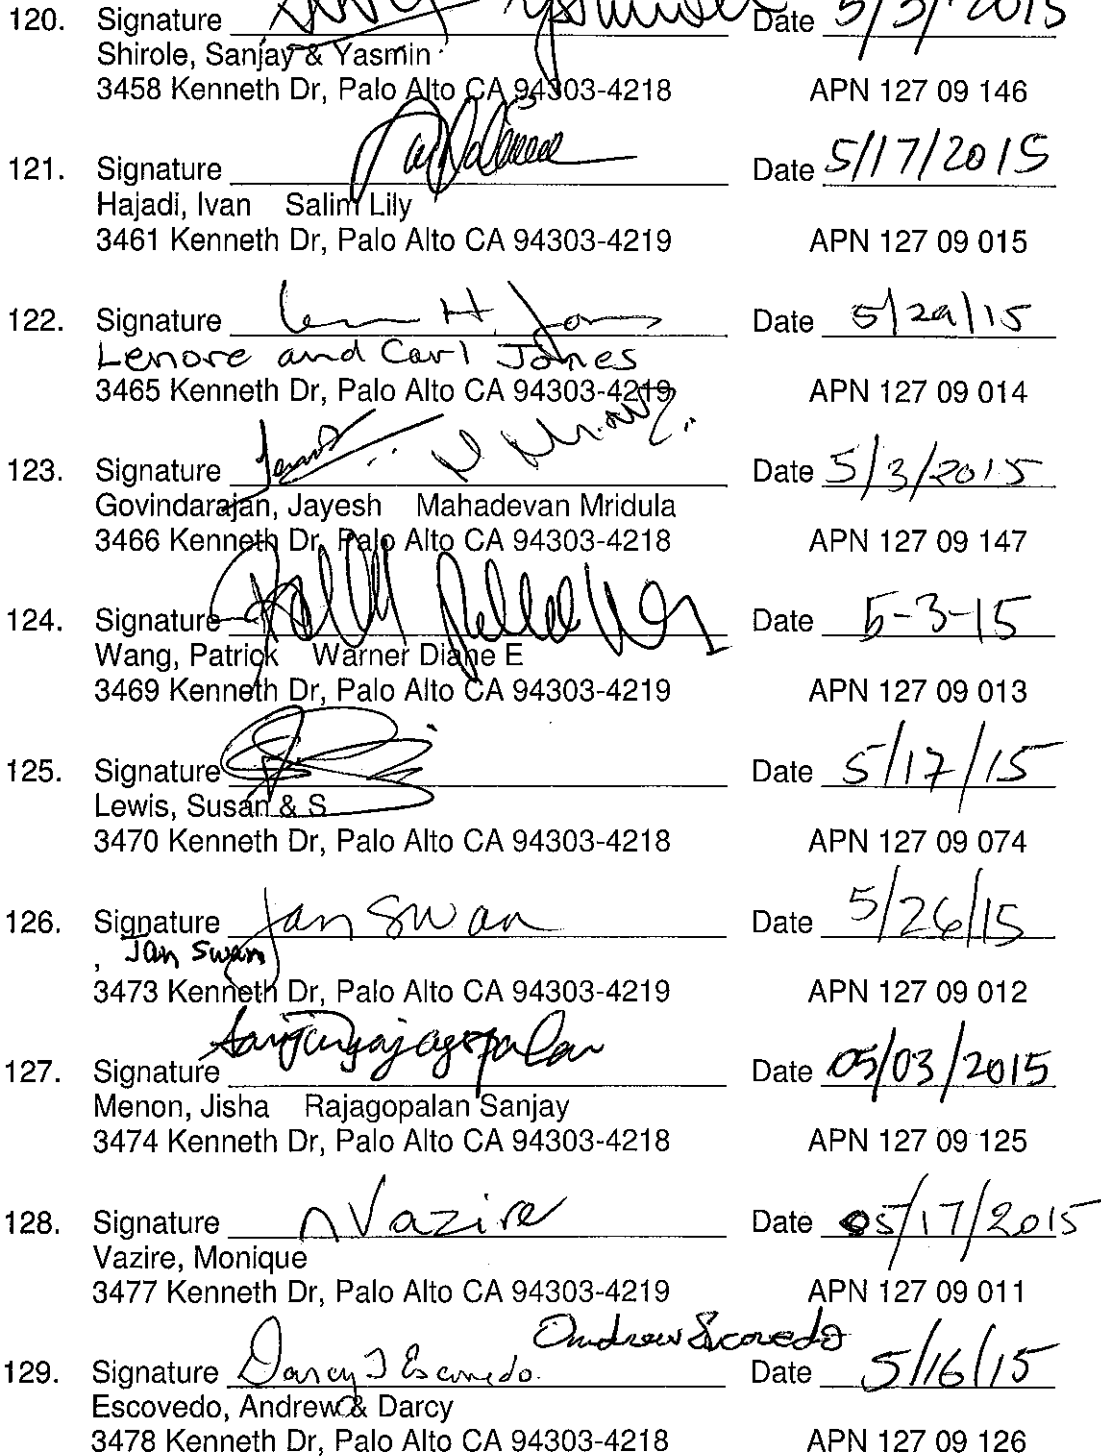 120. Signature Yasmin Date 5/3/2015
Shirole, Sanjay & Yasmin
3458 Kenneth Dr, Palo Alto CA 94303-4218 APN 127 09 146
121. Signature Date 5/17/2015
Hajadi, Ivan Salim Lily
3461 Kenneth Dr, Palo Alto CA 94303-4219 APN 127 09 015
122. Signature H. Jones Date 5/29/15
Lenore and Carl Jones
3465 Kenneth Dr, Palo Alto CA 94303-4219 APN 127 09 014
123. Signature Date 5/3/2015
Govindarajan, Jayesh Mahadevan Mridula
3466 Kenneth Dr, Palo Alto CA 94303-4218 APN 127 09 147
124. Signature Date 5-3-15
Wang, Patrick Warner Diane E
3469 Kenneth Dr, Palo Alto CA 94303-4219 APN 127 09 013
125. Signature Date 5/17/15
Lewis, Susan & S
3470 Kenneth Dr, Palo Alto CA 94303-4218 APN 127 09 074
126. Signature Jan Swan Date 5/26/15
, Jan Swan
3473 Kenneth Dr, Palo Alto CA 94303-4219 APN 127 09 012
127. Signature Sanjay Rajagopalan Date 05/03/2015
Menon, Jisha Rajagopalan Sanjay
3474 Kenneth Dr, Palo Alto CA 94303-4218 APN 127 09 125
128. Signature Vazire Date 05/17/2015
Vazire, Monique
3477 Kenneth Dr, Palo Alto CA 94303-4219 APN 127 09 011
Andrew Escovedo
129. Signature Darcy J Escovedo Date 5/16/15
Escovedo, Andrew & Darcy
3478 Kenneth Dr, Palo Alto CA 94303-4218 APN 127 09 126